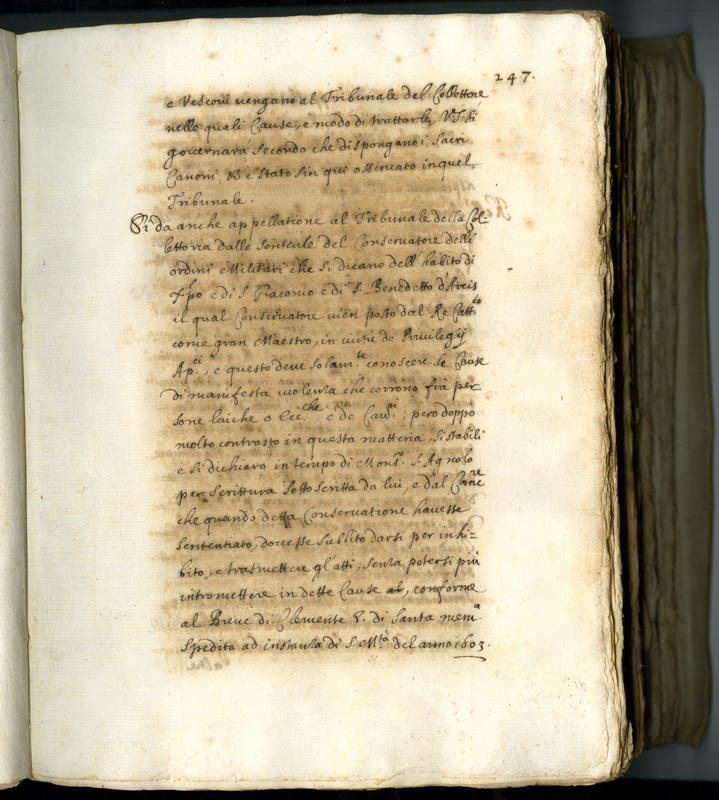 247.
e Vescovi vengano al Tribunale del Collettore
nelle quali Cause, e modo di trattarle, V.S. si
governarà secondo che dispongano i Sacri
Canoni, & è stato sin qui osservato in quel
Tribunale.
Si da anche appellatione al Tribunale della Col-
lettoria dalle sentenze del Conservatore delli
ordini Militari che si dicano dell habito di
Xpo e di S. Giacomo e di S. Benedetto d'Avis
il qual Conservatore vien posto dal Re Catt.co
come gran Maestro, in virtù de Privilegij
Ap.ci, e questo deve solam.te conoscere le Cause
di manifesta violenza che corrono frà per-
sone laiche o Ecc.che e de ; però doppò
molto contrasto in questa matteria, si stabilì
e si dichiarò in tempo di Mons.r S. Agnolo
per scrittura sottoscritta da lui, e dal
che quando detta Conservatione havesse
sententiato, dovesse subbito darsi per inhi-
bito, e trasmettere gl'atti, senza potersi più
intromettere in dette Cause al, conforme
al Breve di Clemente 8. di Santa mem.a
spedito ad instanza di S. M.tà del anno 1603.